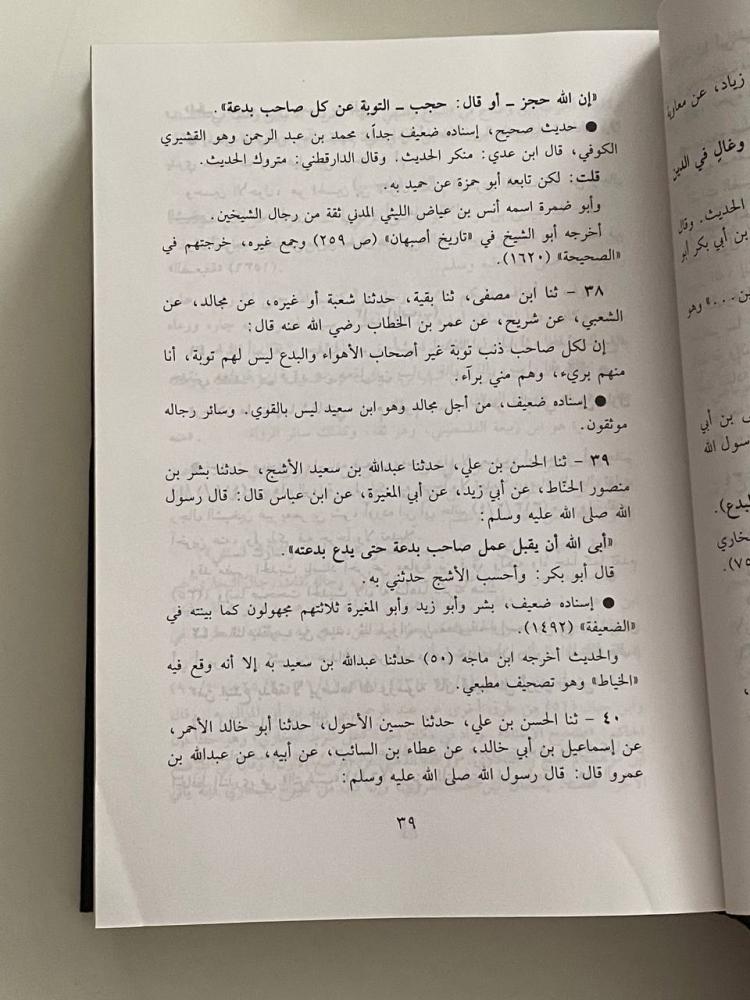 «إن الله حجز ـ أو قال: حجب ـ التوبة عن كل صاحب بدعة».
● حديث صحيح، إسناده ضعيف جداً، محمد بن عبد الرحمن وهو القشيري
الكوفي، قال ابن عدي: منكر الحديث. وقال الدارقطني: متروك الحديث.
قلت: لكن تابعه أبو حمزة عن حميد به.
وأبو ضمرة اسمه أنس بن عياض الليثي المدني ثقة من رجال الشيخين.
أخرجه أبو الشيخ في «تاريخ أصبهان» (ص ٢٥٩) وجمع غيره، خرجتهم في
«الصحيحة» (١٦٢٠).
٣٨ - ثنا ابن مصفى، ثنا بقية، حدثنا شعبة أو غيره، عن مجالد، عن
الشعبي، عن شريح، عن عمر بن الخطاب رضي الله عنه قال:
إن لكل صاحب ذنب توبة غير أصحاب الأهواء والبدع ليس لهم توبة، أنا
منهم بريء، وهم مني برآء.
● إسناده ضعيف، من أجل مجالد وهو ابن سعيد ليس بالقوي. وسائر رجاله
موثقون.
٣٩ - ثنا الحسن بن علي، حدثنا عبدالله بن سعيد الأشج، حدثنا بشر بن
منصور الحنّاط، عن أبي زيد، عن أبي المغيرة، عن ابن عباس قال: قال رسول
الله صلى الله عليه وسلم:
«أبى الله أن يقبل عمل صاحب بدعة حتى يدع بدعته».
قال أبو بكر: وأحسب الأشج حدثني به.
● إسناده ضعيف، بشر وأبو زيد وأبو المغيرة ثلاثتهم مجهولون كما بينته في
«الضعيفة» (١٤٩٢).
والحديث أخرجه ابن ماجه (٥٠) حدثنا عبدالله بن سعيد به إلا أنه وقع فيه
«الخياط» وهو تصحيف مطبعي.
٤٠ - ثنا الحسن بن علي، حدثنا حسين الأحول، حدثنا أبو خالد الأحمر،
عن إسماعيل بن أبي خالد، عن عطاء بن السائب، عن أبيه، عن عبدالله بن
عمرو قال: قال رسول الله صلى الله عليه وسلم:
٣٩
زياد، عن
وغالٍ في الدين
الحديث. وقال
بن أبي بكر أبو
وهو
بن أبي
سول الله